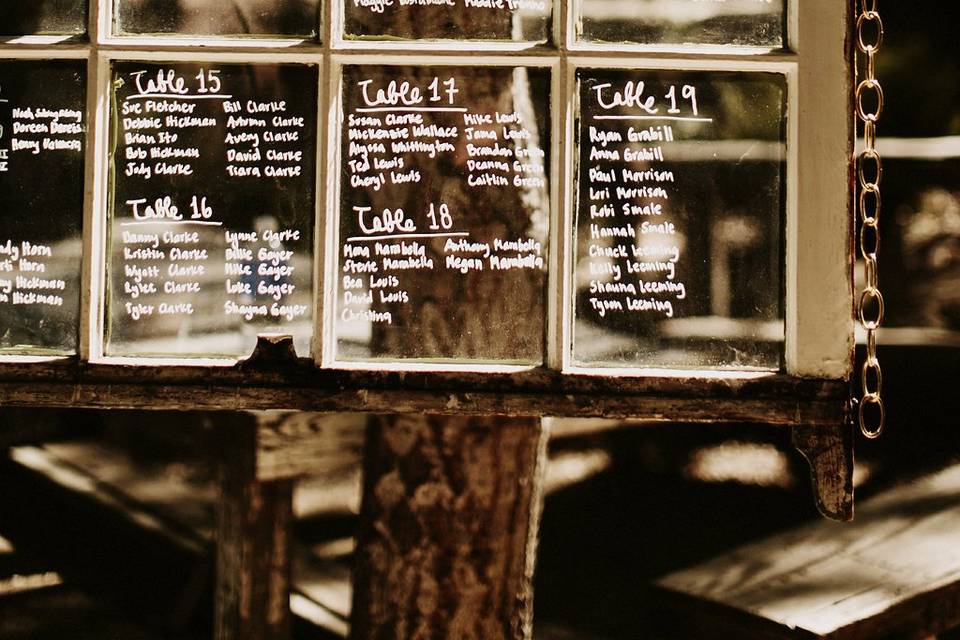 Maggie
Table 15
Sue Fletcher Bill Clarke
Debbie Hickman Autumn Clarke
Brian Ito Avery Clarke
Bob Hickman David Clarke
Judy Clarke Tiara Clarke
Table 16
Danny Clarke Lynne Clarke
Kristin Clarke Billie Gayer
Wyatt Clarke Mike Gayer
Rylee Clarke Luke Gayer
Tyler Clarke Shayna Gayer
Table 17
Susan Clarke Mike Lewis
Mickenzie Wallace Jama Lewis
Alyssa Whittington Brandon Green
Ted Lewis Deanna Green
Cheryl Lewis Caitlin Green
Table 18
Mona Marabella Anthony Marabella
Stevie Marabella Megan Marabella
Bea Louis
David Louis
Christina
Table 19
Ryan Grabill
Anna Grabill
Paul Morrison
Lori Morrison
Robi Smale
Hannah Smale
Chuck Leeming
Kelly Leeming
Shauna Leeming
Tyson Leeming
Doreen
Henny
Horn
Horn
Hickman
Hickman